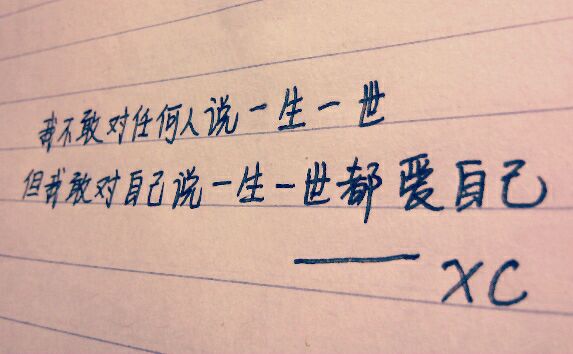 我不敢对任何人说一生一世
但我敢对自己说一生一世都爱自己
—— XC